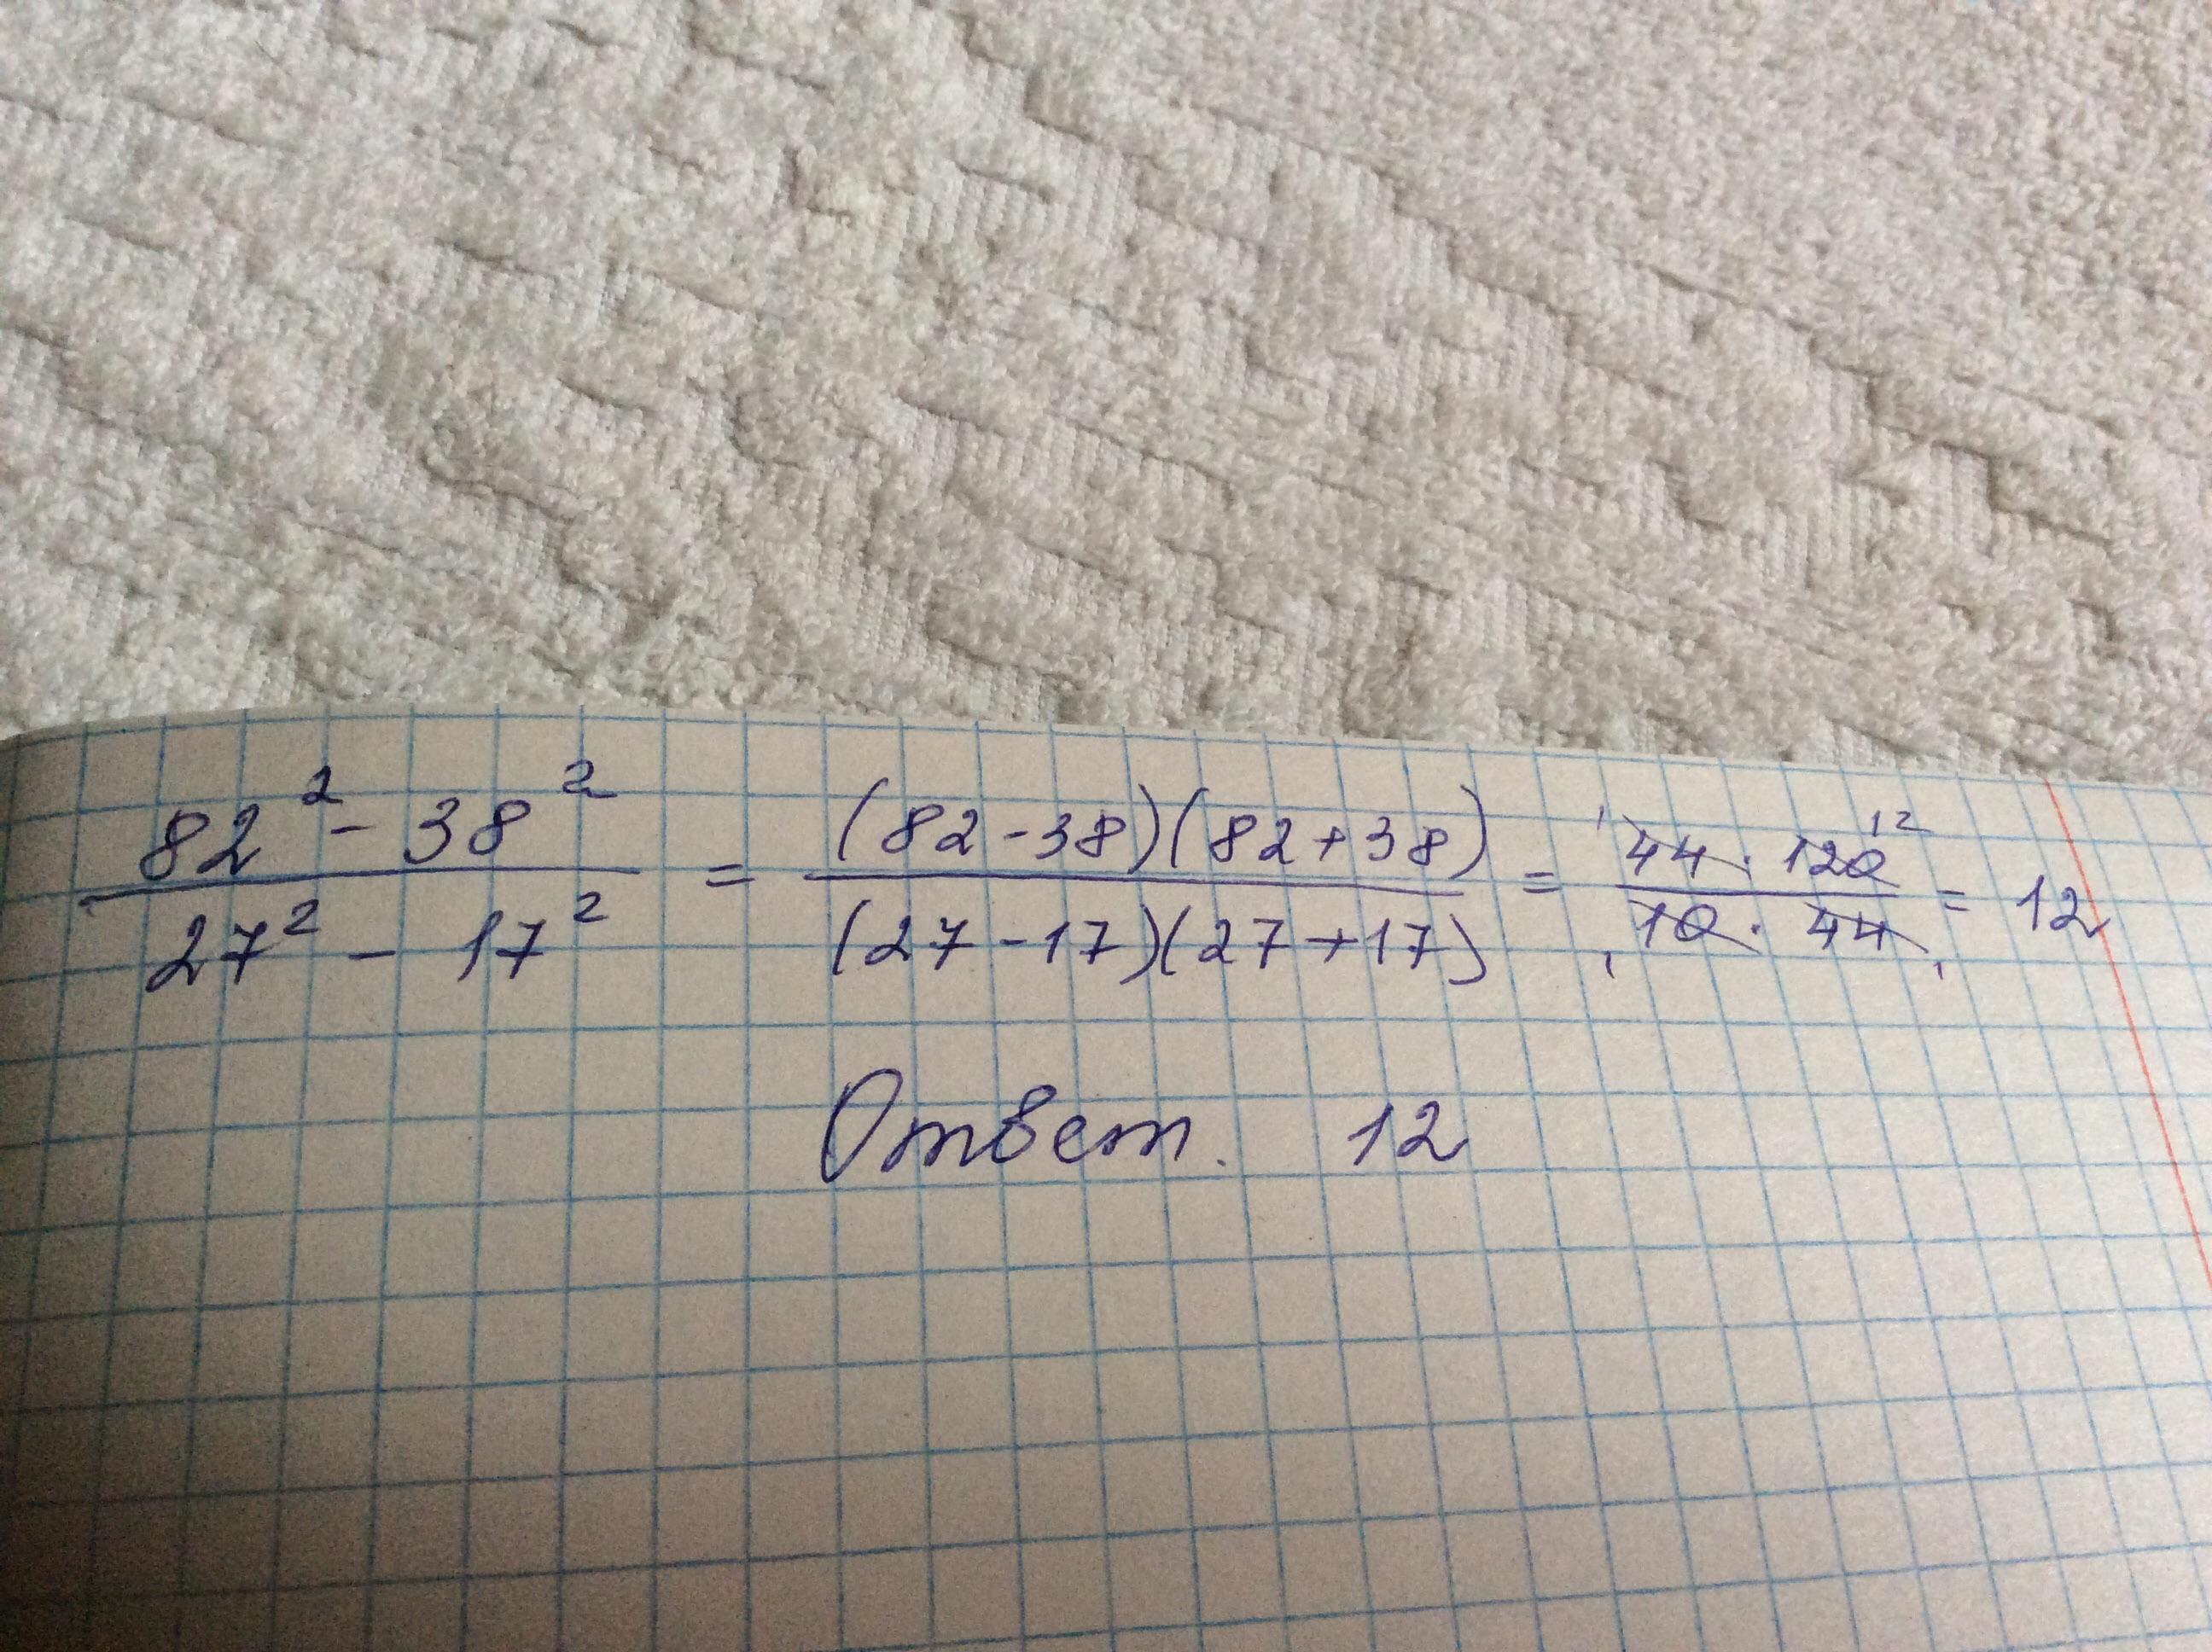 82² - 38² / 27² - 17² = (82-38)(82+38) / (27-17)(27+17) = ¹44 · 120¹² / ₁10 · 44₁ = 12
Ответ. 12